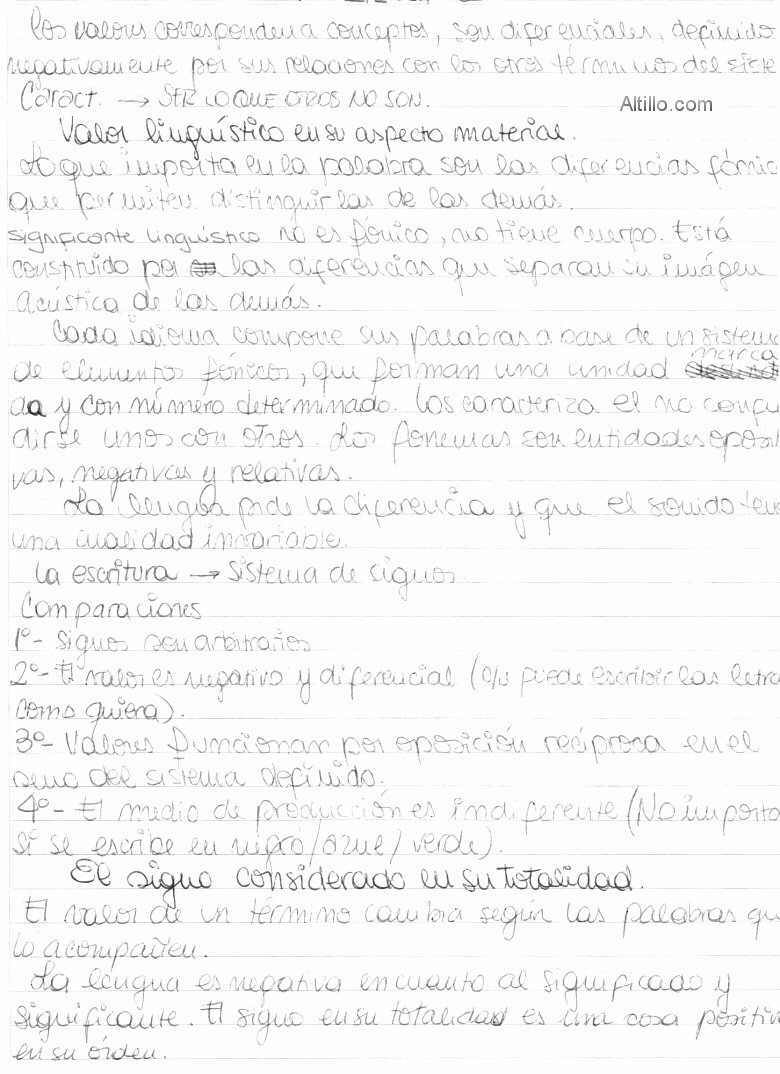 los valores corresponden a conceptos, son diferenciales, definido
negativamente por sus relaciones con los otros términos del siste
Caract. → SER LO QUE OTROS NO SON.
Altillo.com
Valor lingüístico en su aspecto material.
Lo que importa en la palabra son las diferencias fónic
que permiten distinguirlas de las demás.
significante lingüístico no es fónico, no tiene cuerpo. Está
constituido por las diferencias que separan su imágen
acústica de las demás.
Cada idioma compone sus palabras a base de un sistema
de elementos fónicos, que forman una unidad marca
da y con número determinado. Los caracteriza el no confu
dirse unos con otros. Los fonemas son entidades oposit
vas, negativas y relativas.
La lengua pide la diferencia y que el sonido ten
una cualidad invariable.
la escritura → sistema de signos
Comparaciones
1º- signos son arbitrarios
2º- El valor es negativo y diferencial (c/u puede escribir las letra
como quiera).
3º- Valores funcionan por oposición recíproca en el
seno del sistema definido.
4º- El medio de producción es indiferente (No importa
si se escribe en negro/azul/verde).
El signo considerado en su totalidad.
El valor de un término cambia según las palabras qu
lo acompañen.
La lengua es negativa en cuanto al significado y
significante. El signo en su totalidad es una cosa positiv
en su órden.